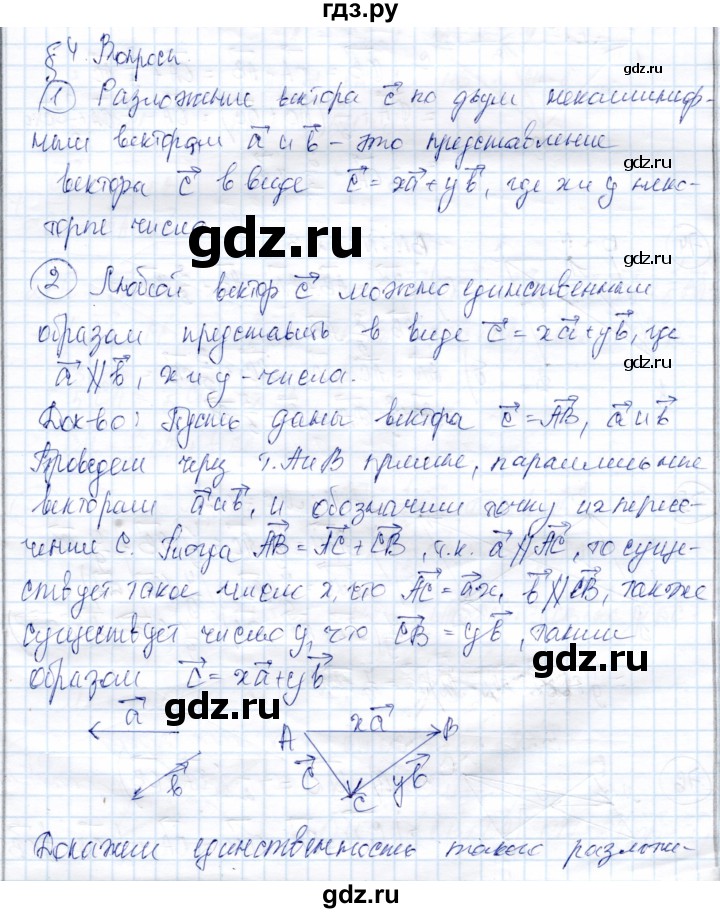 гдз.ру
§ 4. Вопросы
gdz.ru
① Разложение вектора c по двум неколлинеар-
ным векторам a и b – это представление
вектора c в виде c = xa + yb, где x и y неко-
торые числа
gdz.ru
gdz.ru
② Любой вектор c можно единственным
образом представить в виде c = xa + yb, где
a ∦ b, x и y - числа.
gdz.ru
Док-во: Пусть даны вектора c = AB, a и b
Проведем через т. A и B прямые, параллельные
векторам a и b, и обозначим точку их пересе-
чения C. Тогда AB = AC + CB, т.к. a ∦ AC, то суще-
ствует такое число x, что AC = ax, b ∦ CB, также
существует число y, что CB = yb, таким
gdz.ru
образом c = xa + yb
gdz.ru
a
A xa B
b
c yb
C
gdz.ru
Докажем единственность такого разложе-
gdz.ru